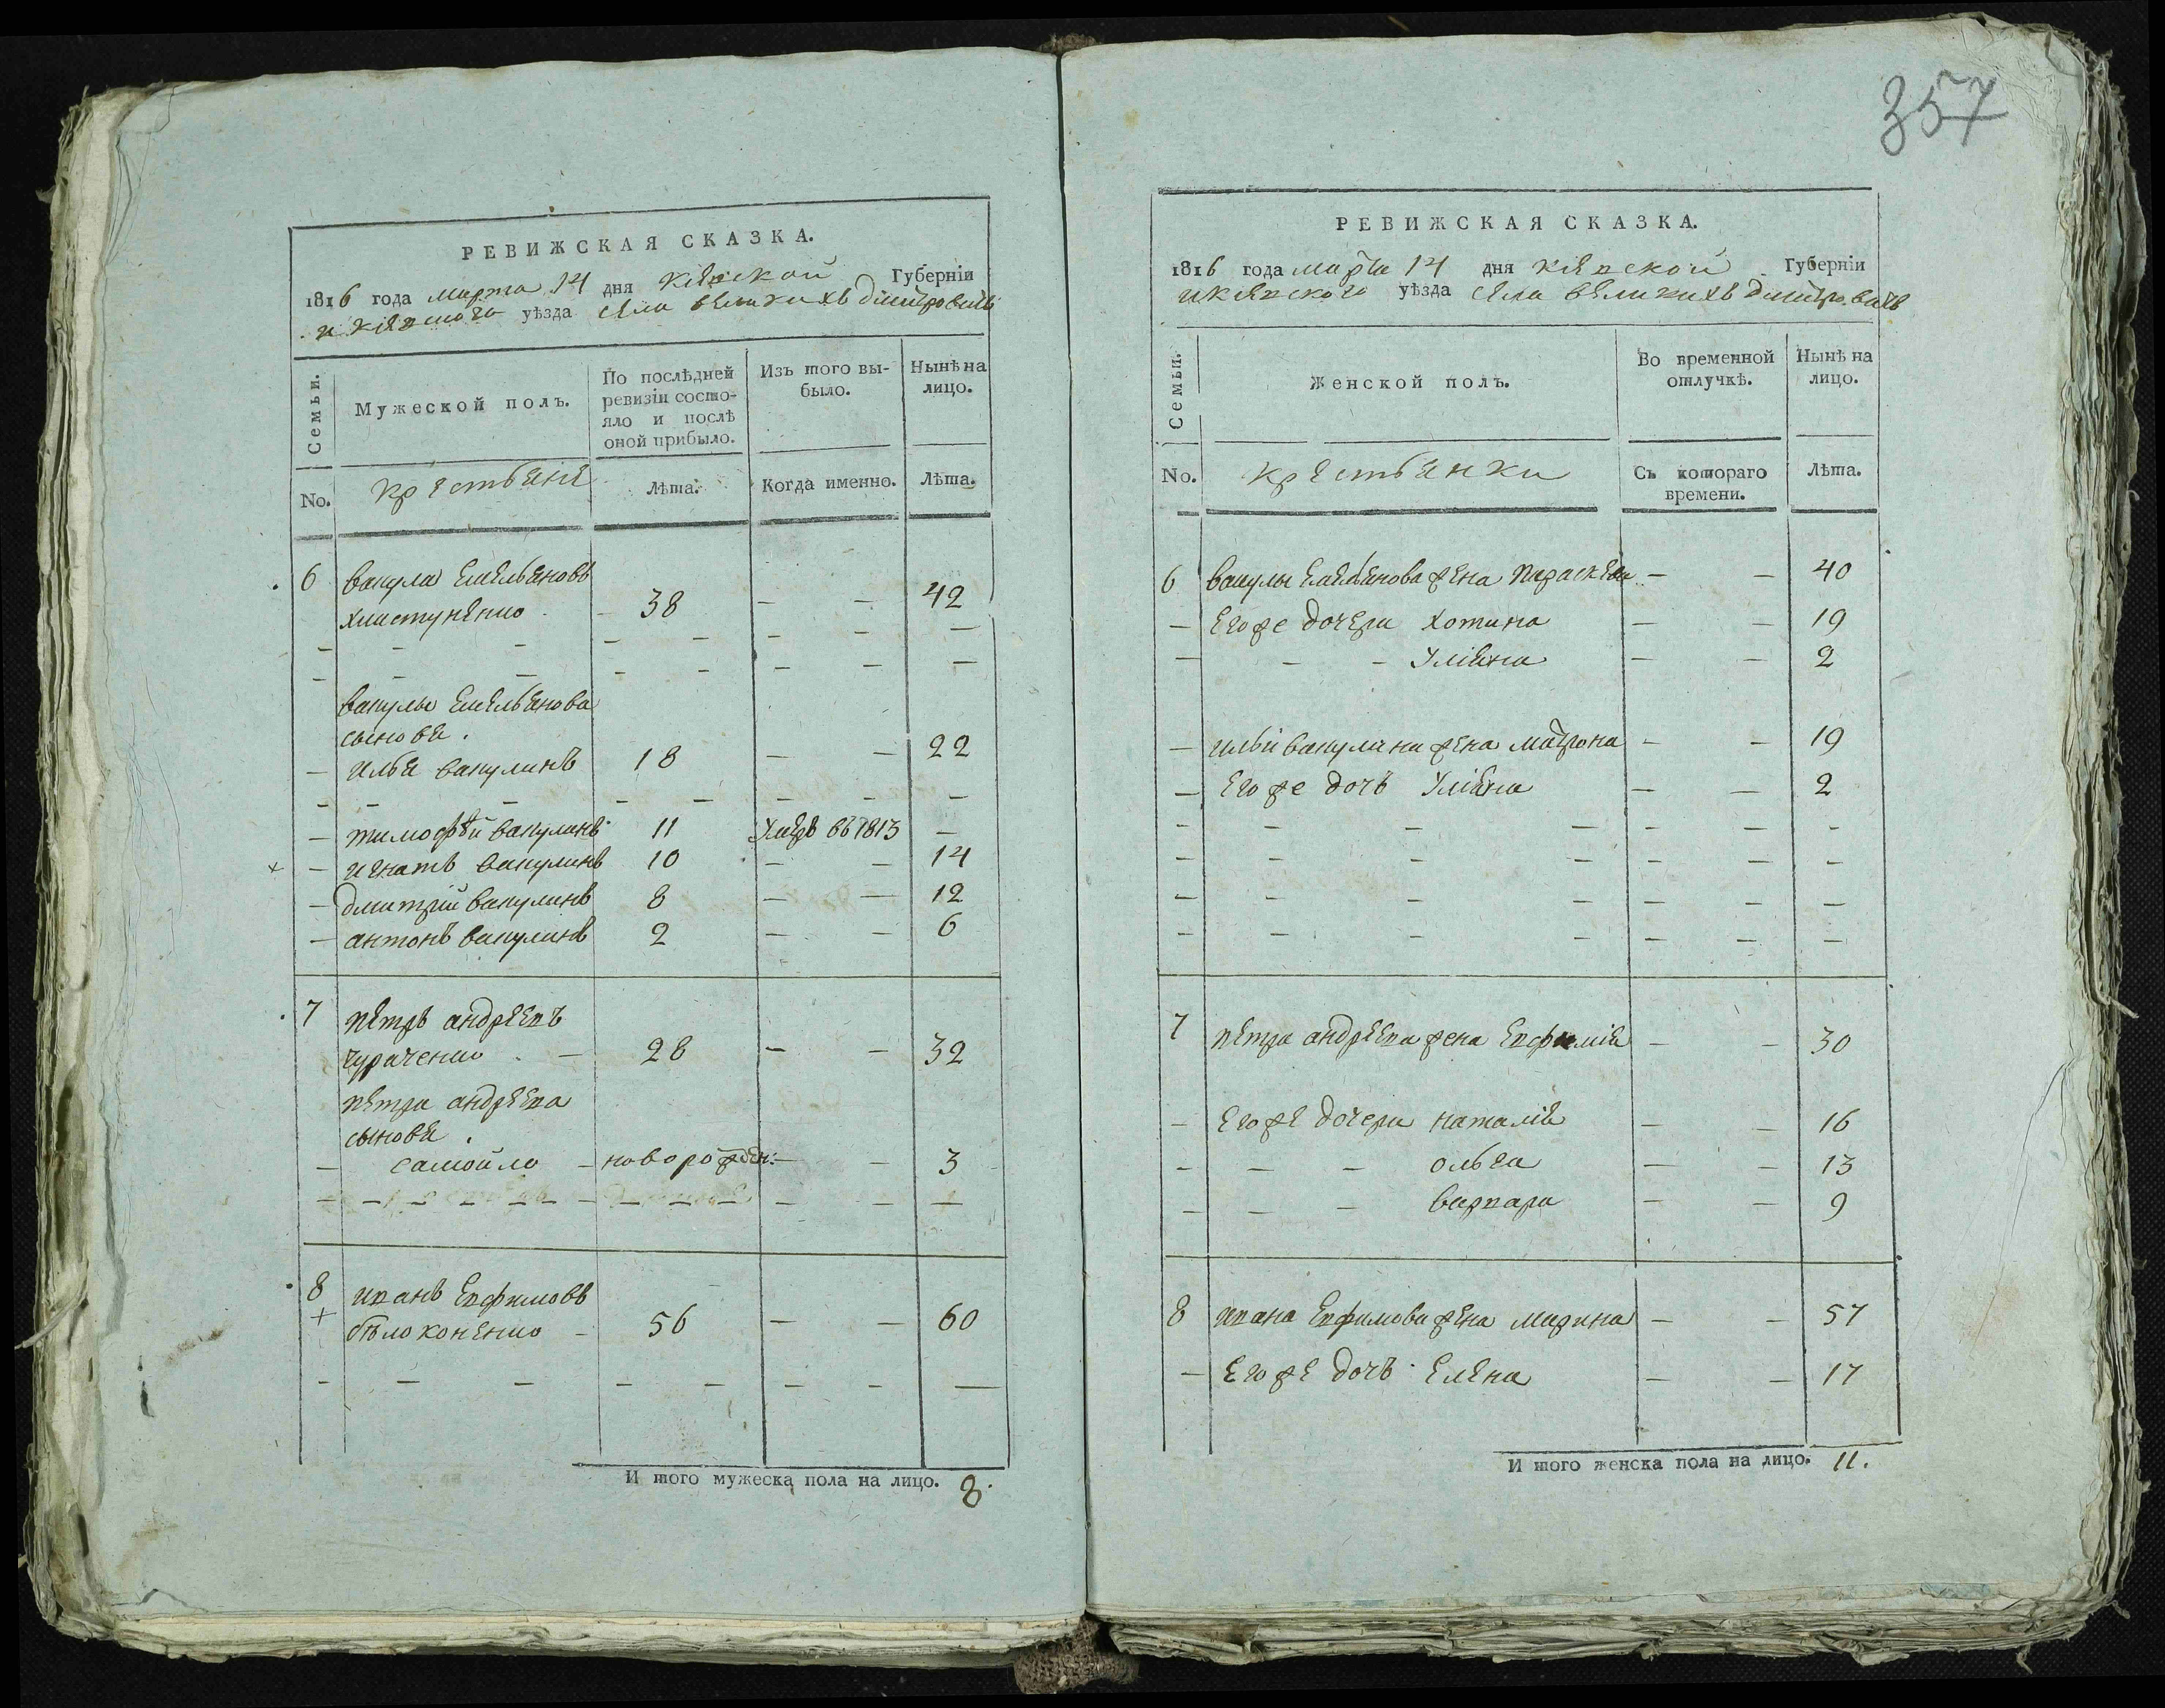 357
РЕВИЖСКАЯ СКАЗКА.
1816 года марта 14 дня Кіевской Губерніи
и Кіевского уѣзда села Великихъ Дмитровичъ
Семьи.
Мужеской полъ.
По послѣдней ревизіи состояло и послѣ оной прибыло.
Изъ того выбыло.
Нынѣ на лицо.
No.
крестьяне
Лѣта.
Когда именно.
Лѣта.
6 вакула Емельяновъ
хластуненко - 38 - - 42
вакулы Емельянова
сыновя.
- илья вакулинъ 18 - - 22
- тимофѣй вакулинъ 11 Умеръ въ 1813 -
+ - игнатъ вакулинъ 10 - - 14
- дмитрій вакулинъ 8 - - 12
- антонъ вакулинъ 2 - - 6
7 петръ андреевъ
чураченко - 28 - - 32
петра андреева
сыновя.
- самойло - новорожден: - - 3
8 иванъ Евфимовъ
+ бѣлоконенко - 56 - - 60
И того мужеска пола на лицо. 8.
РЕВИЖСКАЯ СКАЗКА.
1816 года марта 14 дня Кіевской Губерніи
и Кіевского уѣзда села Великихъ Дмитровичъ
Семьи.
Женской полъ.
Во временной отлучкѣ.
Нынѣ на лицо.
No.
крестьянки
Съ котораго времени.
Лѣта.
6 вакулы Емельянова жена Параскева - - 40
- Егоже дочери Хотина - - 19
- - - Уліяна - - 2
- ильи вакулина жена матрона - - 19
- Егоже дочь Уліяна - - 2
7 петра андреева жена Евфимія - - 30
- Егоже дочери наталія - - 16
- - - ольга - - 13
- - - варвара - - 9
8 ивана Евфимова жена марина - - 57
- Егоже дочь Елена - - 17
И того женска пола на лицо. 11.